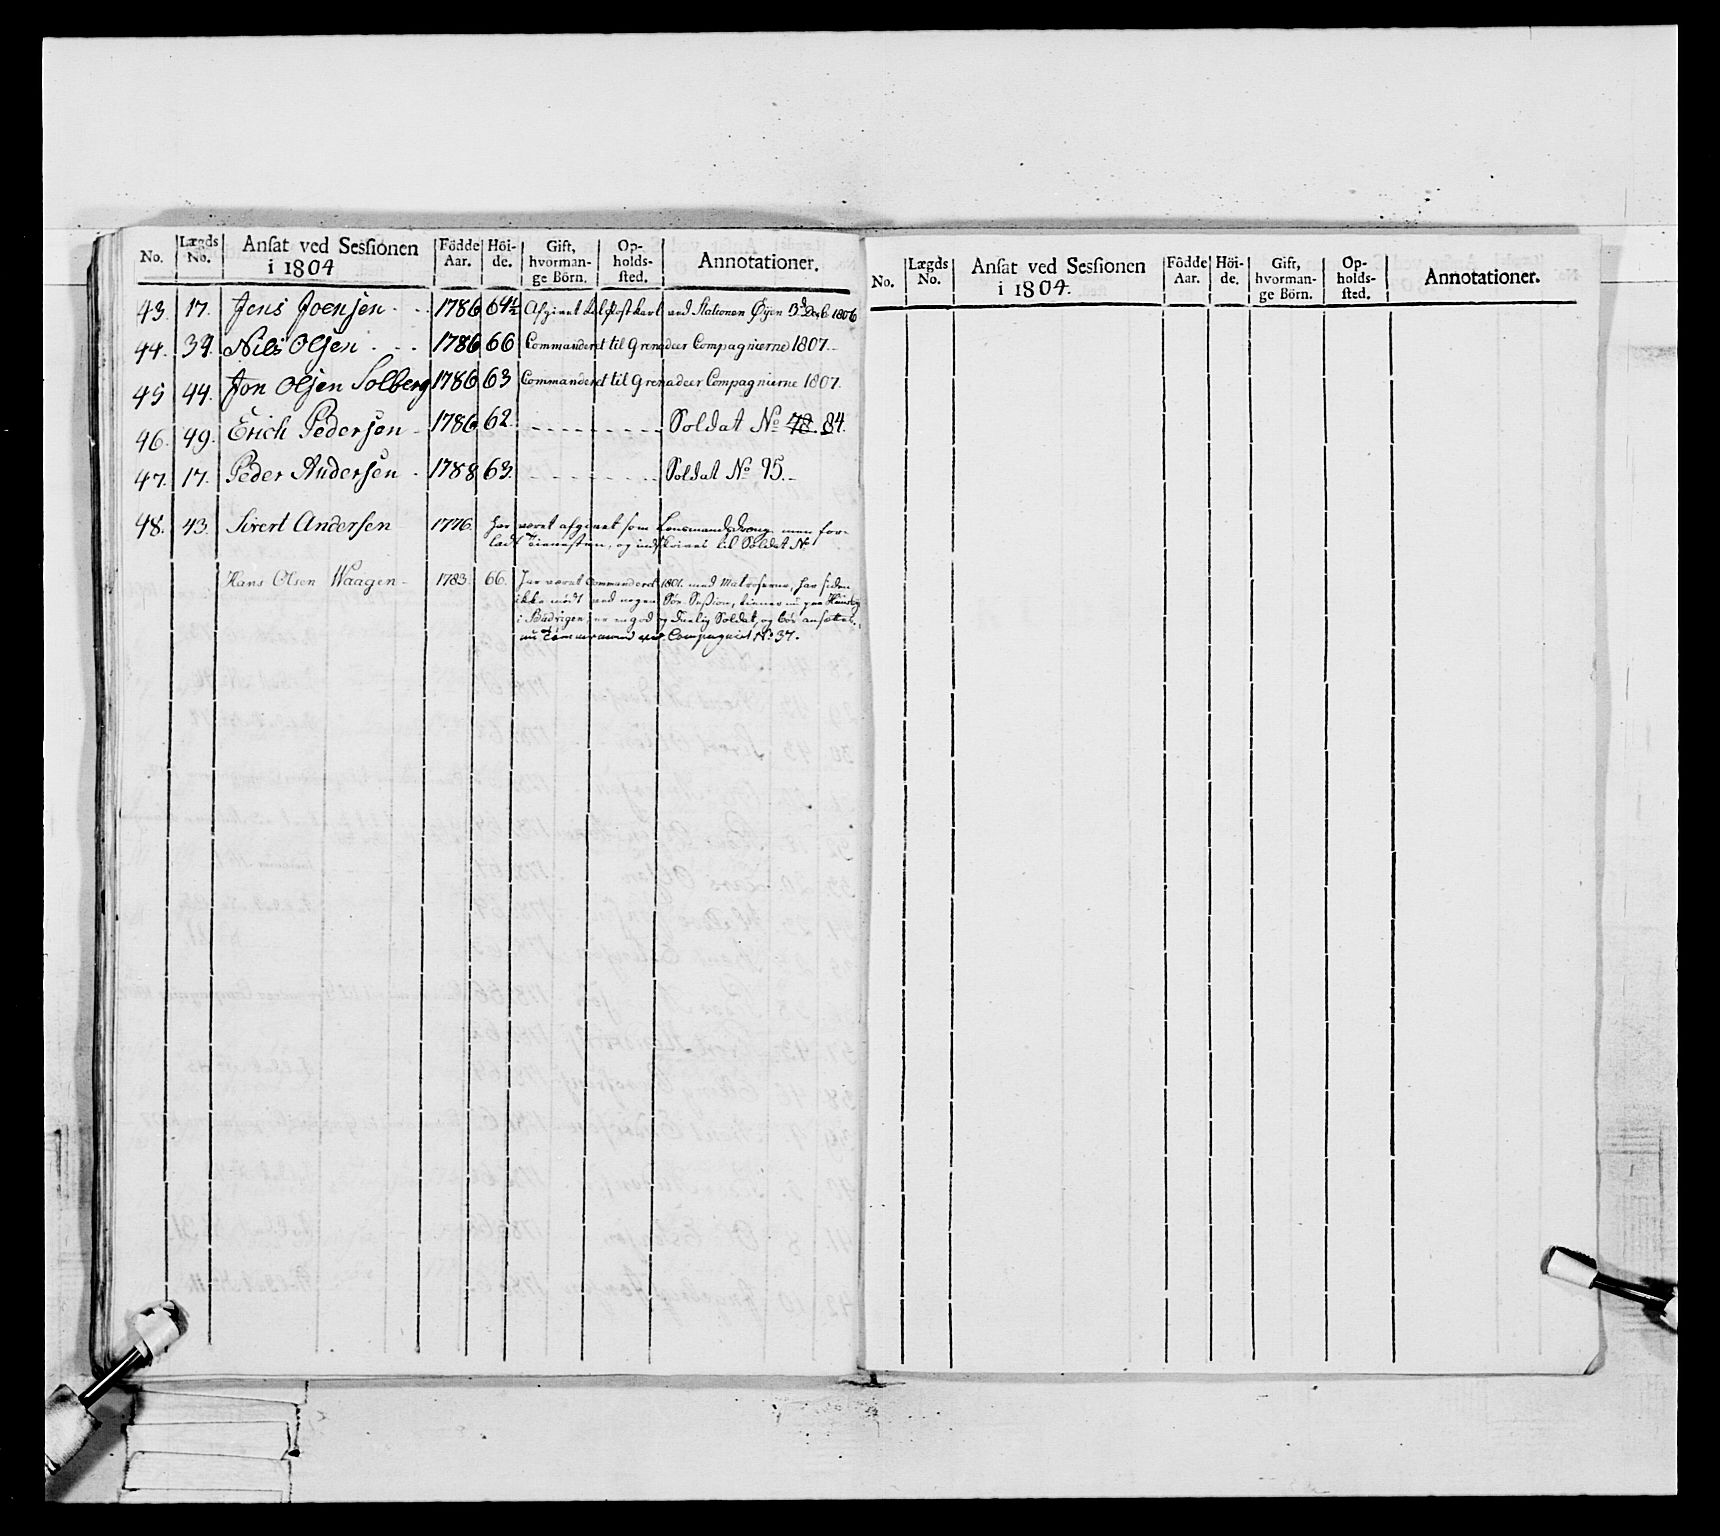 No. Lægds No. Ansat ved Sessionen i 1804 Födde Aar. Höi-de. Gift, hvorman-ge Börn. Op-holds-sted. Annotationer.
43. 17. Jens Joensen 1786 64½ Afgivet til Postkarl ved Stationen Øyen 3d Decb 1806
44. 34. Nils Olsen 1786 66 Commanderet til Grenadeer Compagnierne 1807.
45 44. Jon Olsen Solberg 1786 63 Commanderet til Grenadeer Compagnierne 1807.
46. 49. Erich Pedersen 1786 62. Soldat No 78. 84.
47. 17. Peder Andersen 1788 63. Soldat No 95.
48. 43. Sivert Andersen 1776. har været afgivet som Lensmandsdreng men for-
ladt Tienesten, og indskrives til Soldat No
Hans Olsen Waagen 1783. 66. har været Commanderet 1801. med Matroserne, har siden
ikke mødt ved nogen Söe Session, tiener nu paa
i Budvigen, er en god og Duelig Soldat, og bör ansættes
nu Tömmermand ved Compagniet No 37.
No. Lægds No. Ansat ved Sessionen i 1804. Födde Aar. Höi-de. Gift, hvorman-ge Börn. Op-holds-sted. Annotationer.